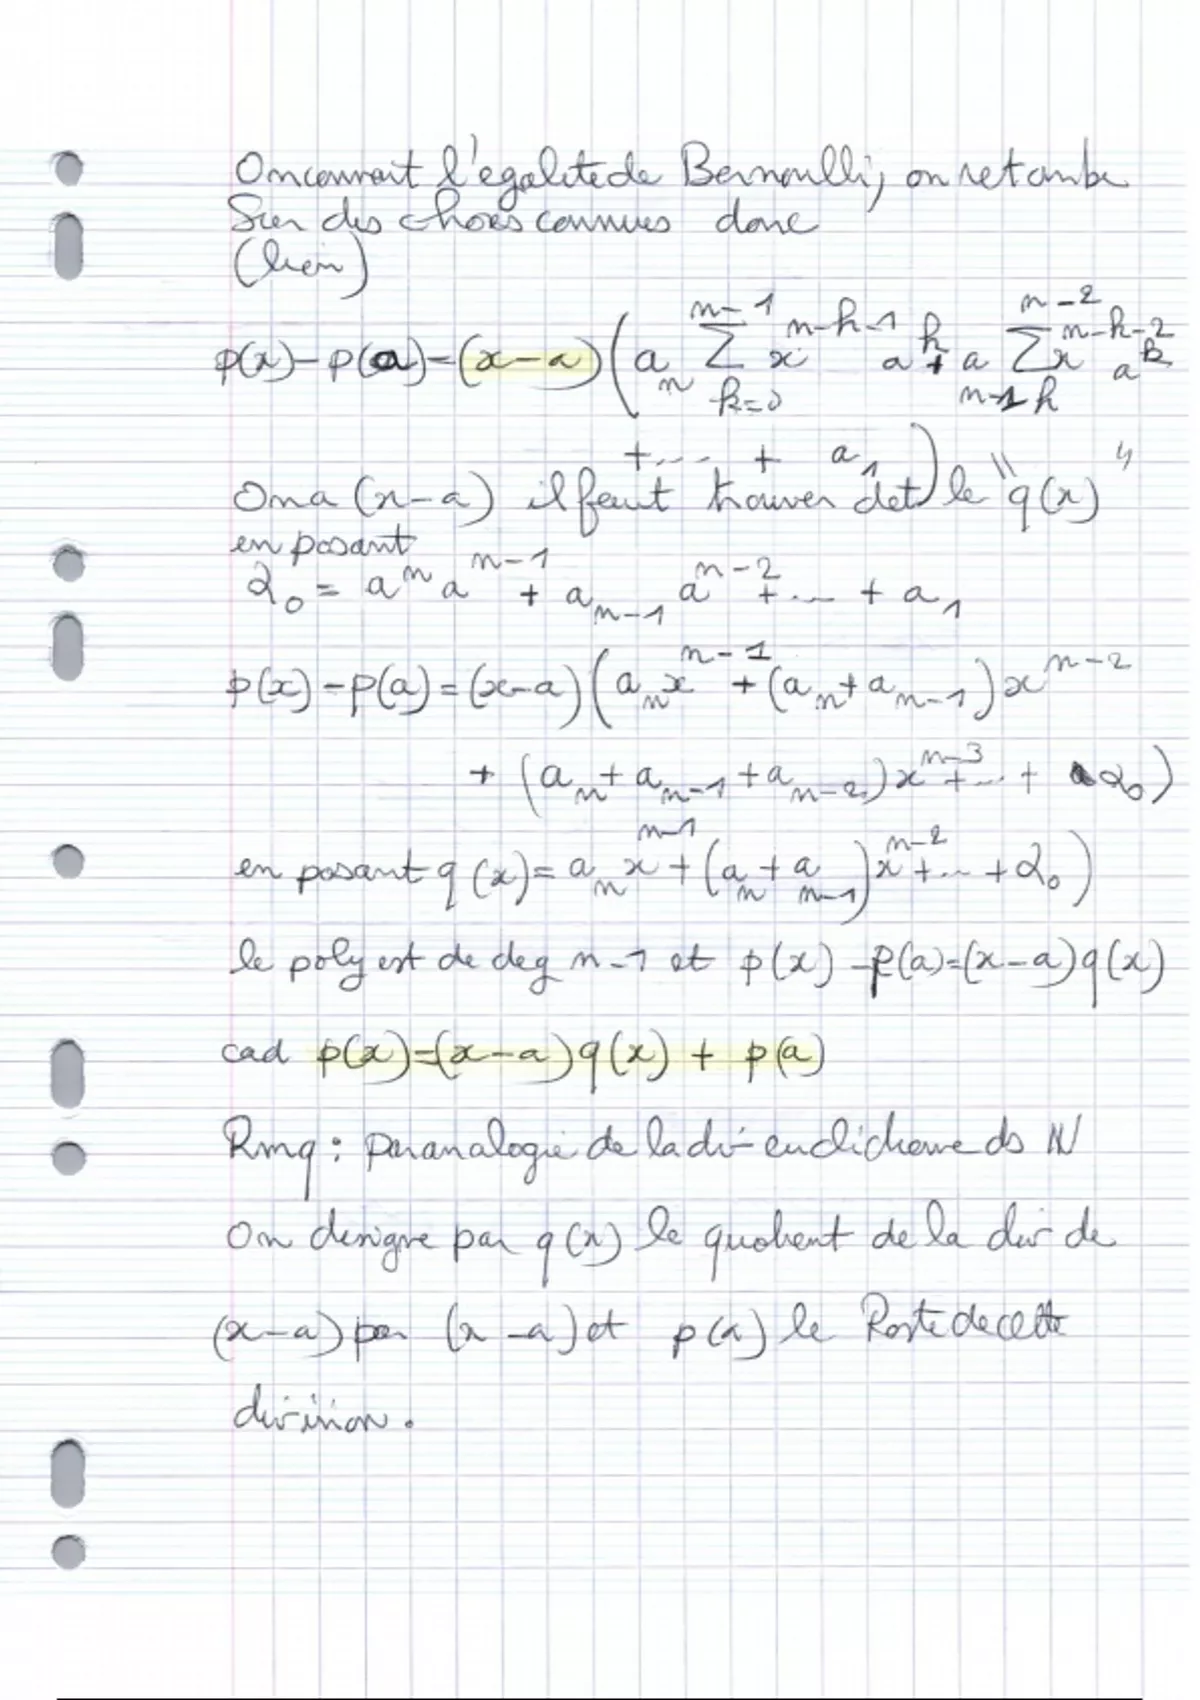 On connait l'égalité de Bernoulli, on retombe
sur des choses connues donc
(lien)
p(x)-p(a)=(x-a)(a_n \sum_{k=0}^{n-1} x^{n-k-1} a^k + a_{n-1} \sum_{k}^{n-2} x^{n-k-2} a^k
+ ... + a_1)
On a (x-a) il faut trouver det le "q(x)"
en posant
α_0 = a^n a^{n-1} + a_{n-1} a^{n-2} + ... + a_1
p(x)-p(a)=(x-a)(a_n x^{n-1} + (a_n + a_{n-1}) x^{n-2}
+ (a_n + a_{n-1} + a_{n-2}) x^{n-3} + ... + α_0)
en posant q(x)= a_n x^{n-1} + (a_n + a_{n-1}) x^{n-2} + ... + α_0)
le poly est de deg n-1 et p(x)-p(a)=(x-a)q(x)
cad p(x)=(x-a)q(x) + p(a)
Rmq : par analogie de la div euclidienne ds ℕ
On désigne par q(x) le quotient de la div de
(x-a) par (x-a) et p(a) le Reste de cette
division.